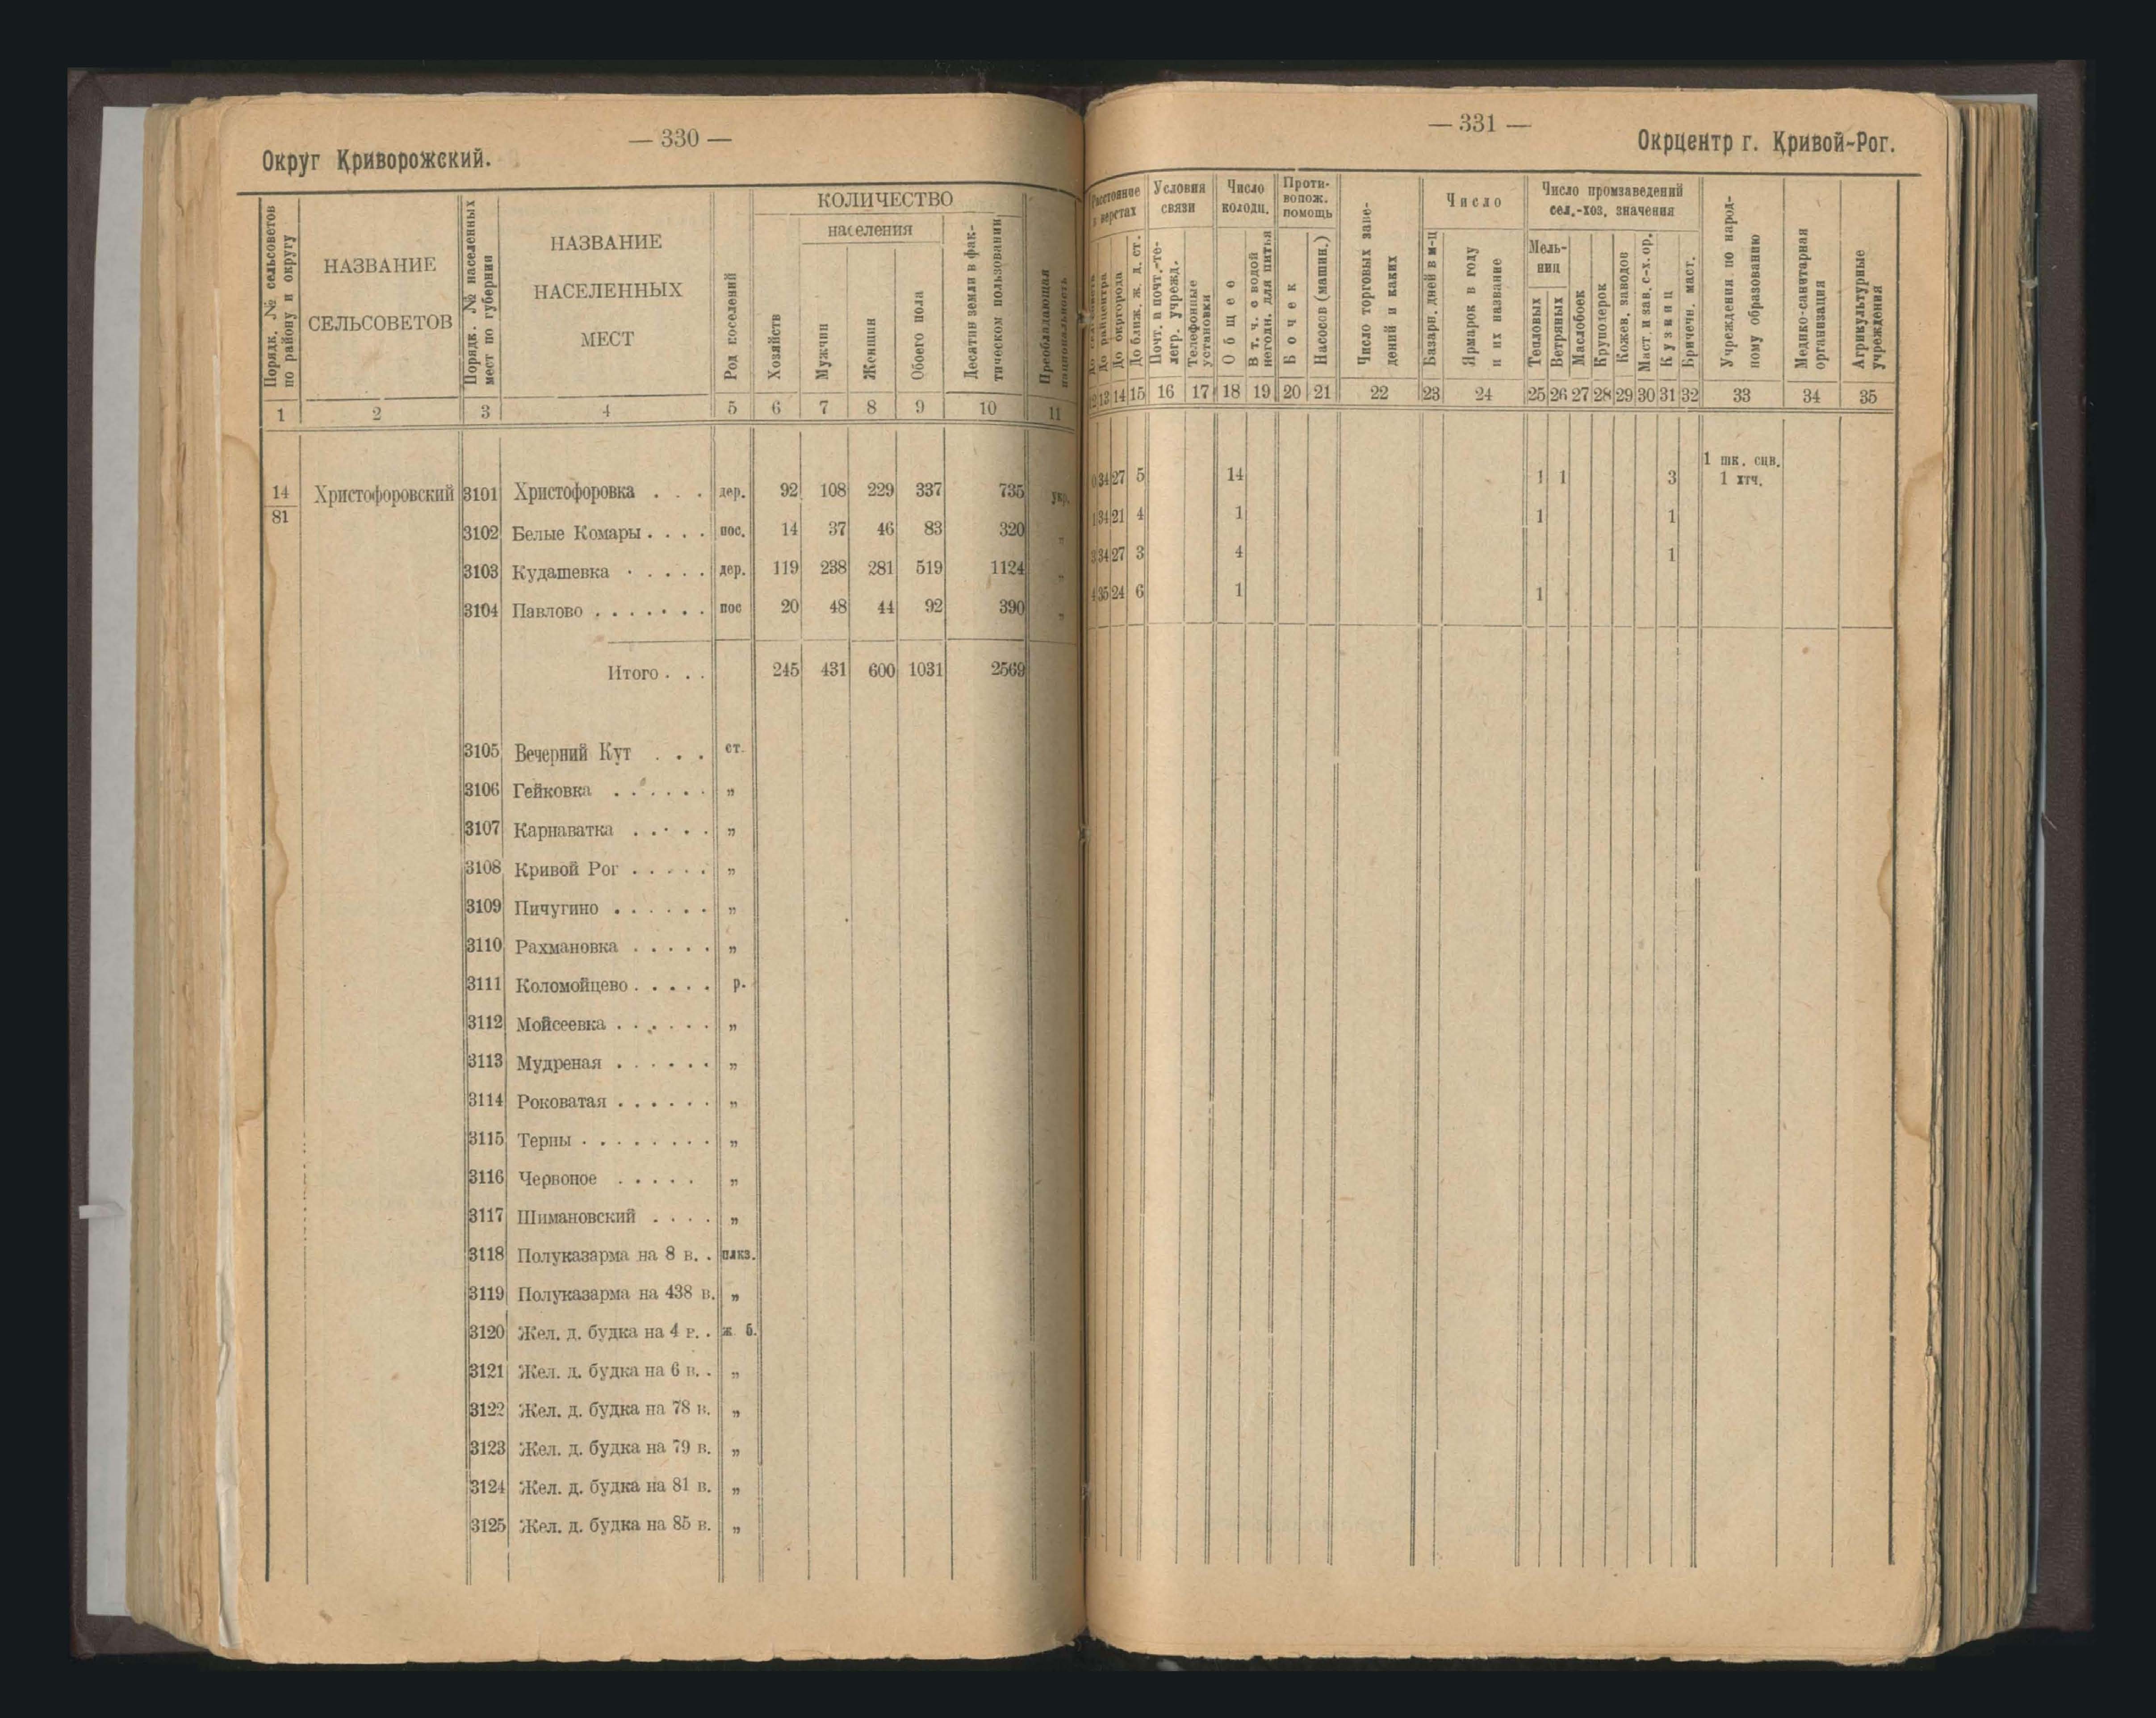 — 330 —
Округ Криворожский.
Порядк. №№ сельсоветов по району и округу
НАЗВАНИЕ СЕЛЬСОВЕТОВ
Порядк. №№ населенных мест по губернии
НАЗВАНИЕ НАСЕЛЕННЫХ МЕСТ
Род поселений
КОЛИЧЕСТВО
Хозяйств
населения
Мужчин
Женщин
Обоего пола
Десятин земли в фактическом пользовании
Преобладающая национальность
1 2 3 4 5 6 7 8 9 10 11
14/81 Христофоровский 3101 Христофоровка . . . дер. 92 108 229 337 735 укр.
3102 Белые Комары . . . . пос. 14 37 46 83 320 „
3103 Кудашевка . . . . . дер. 119 238 281 519 1124 „
3104 Павлово . . . . . . . пос 20 48 44 92 390 „
Итого . . . 245 431 600 1031 2569
3105 Вечерний Кут . . . ст.
3106 Гейковка . . . . . . „
3107 Карнаватка . . . . . „
3108 Кривой Рог . . . . . „
3109 Пичугино . . . . . . „
3110 Рахмановка . . . . . „
3111 Коломойцево . . . . . р.
3112 Мойсеевка . . . . . . „
3113 Мудреная . . . . . . „
3114 Роковатая . . . . . . „
3115 Терны . . . . . . . . „
3116 Червоное . . . . . „
3117 Шимановский . . . . „
3118 Полуказарма на 8 в. . плкз.
3119 Полуказарма на 438 в. „
3120 Жел. д. будка на 4 в. . ж б.
3121 Жел. д. будка на 6 в. . „
3122 Жел. д. будка на 78 в. „
3123 Жел. д. будка на 79 в. „
3124 Жел. д. будка на 81 в. „
3125 Жел. д. будка на 85 в. „
— 331 —
Окрцентр г. Кривой-Рог.
Расстояние в верстах
До райцентра
До окргорода
До ближ. ж. д. ст.
Условия связи
Почт. и почт.-телегр. учрежд.
Телефонные установки
Число колодц.
Общее
В т. ч. с водой негодн. для питья
Противопож. помощь
Бочек
Насосов (машин.)
Число торговых заведений и каких
Число
Базарн. дней в м-ц
Ярмарок в году и их название
Число промзаведений сел.-хоз. значения
Мельниц
Тепловых
Ветряных
Маслобоек
Крупорок
Кожев. заводов
Маст. и зав. с-х. ор.
Кузниц
Бричечн. маст.
Учреждения по народному образованию
Медико-санитарная организация
Агрикультурные учреждения
12 13 14 15 16 17 18 19 20 21 22 23 24 25 26 27 28 29 30 31 32 33 34 35
0 34 27 5 14 1 1 3 1 шк. сцв. 1 хтч.
1 34 21 4 1 1 1
3 34 27 3 4 1
4 35 24 6 1 1